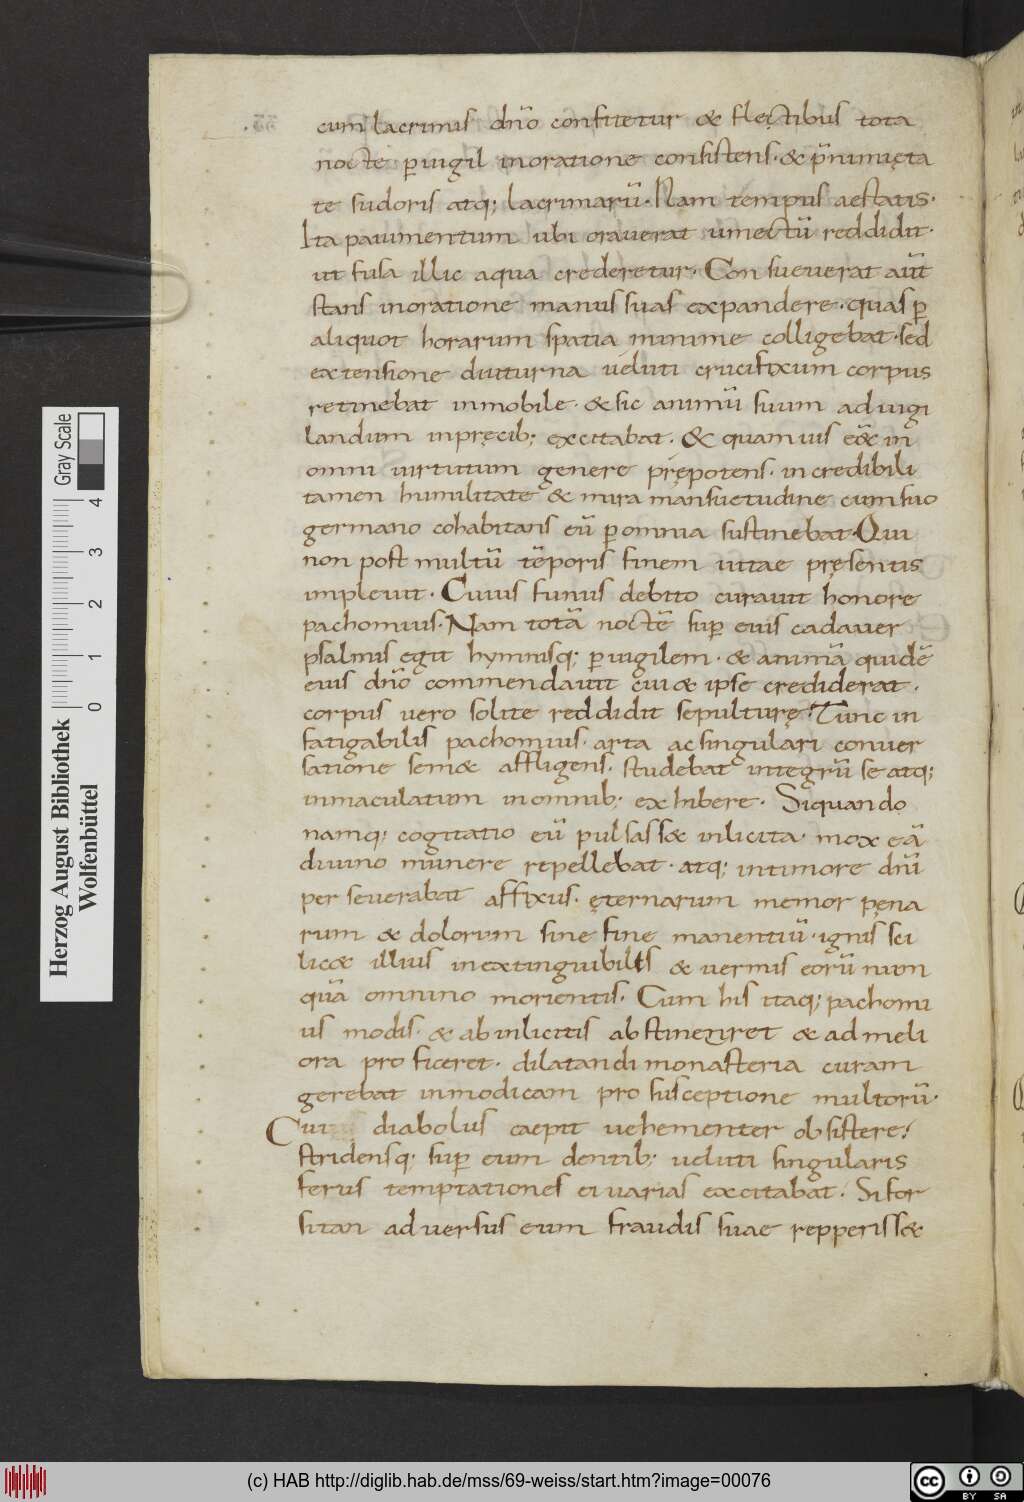 cum lacrimis dn̄o confitetur & flęctibus tota
nocte ꝑuigil inoratione consistens· & p̄nimięta
te sudoris atq; lacrimarū· Nam tempus aestatis·
Ita pauimentum ubi orauerat umectū reddidit·
ut fusa illic aqua crederetur· Con sueuerat aūt
stans inoratione manus suas expandere· quas ꝑ
aliquot horarum spatia minime colligebat· sed
extensione diuturna ueluti crucifixum corpus
retinebat inmobile· & sic animū suum aduigi
landum inpręcib; excitabat· & quamuis eēt in
omni uirtutum genere prępotens· incredibili
tamen humilitate & mira mansuetudine cumsuo
germano cohabitans eū ꝑomnia sustinebat· Qui
non post multū tēporis finem uitae pręsentis
impleuit· Cuius funus debito curauit honore
pachomius· Nam totā noctē suꝑ eius cadauer
psalmis egit hymnisq; ꝑuigilem· & animā quidē
eius dn̄o commendauit cui & ipse crediderat·
corpus uero solite reddidit sepulturę· Tunc in
fatigabilis pachomius· arta acsingulari conuer
satione sem& affligens· studebat integrū se atq;
inmaculatum inomnib; exhibere· Siquando
namq; cogitatio eū pulsass& inlicita· mox eā
diuino munere repellebat· atq; intimore dn̄i
per seuerabat affixus· ęternarum memor pęna
rum & dolorum sine fine manentiū· ignis sci
lic& illius inextinguibilis & uermis eorū num
quā omnino morientis· Cum his itaq; pachomi
us modis· & abinlicitis abstineret & ad meli
ora proficeret· dilatandi monasteria curam
gerebat inmodicam pro susceptione multorū·
Cui diabolus caepit uehementer obsistere;
stridensq; suꝑ eum dentib; ueluti singularis
ferus temptationes ei uarias excitabat· Sifor
sitan aduersus eum fraudis suae repperiss&
Gray Scale
0 1 2 3 4
Herzog August Bibliothek
Wolfenbüttel
(c) HAB http://diglib.hab.de/mss/69-weiss/start.htm?image=00076
cc BY SA